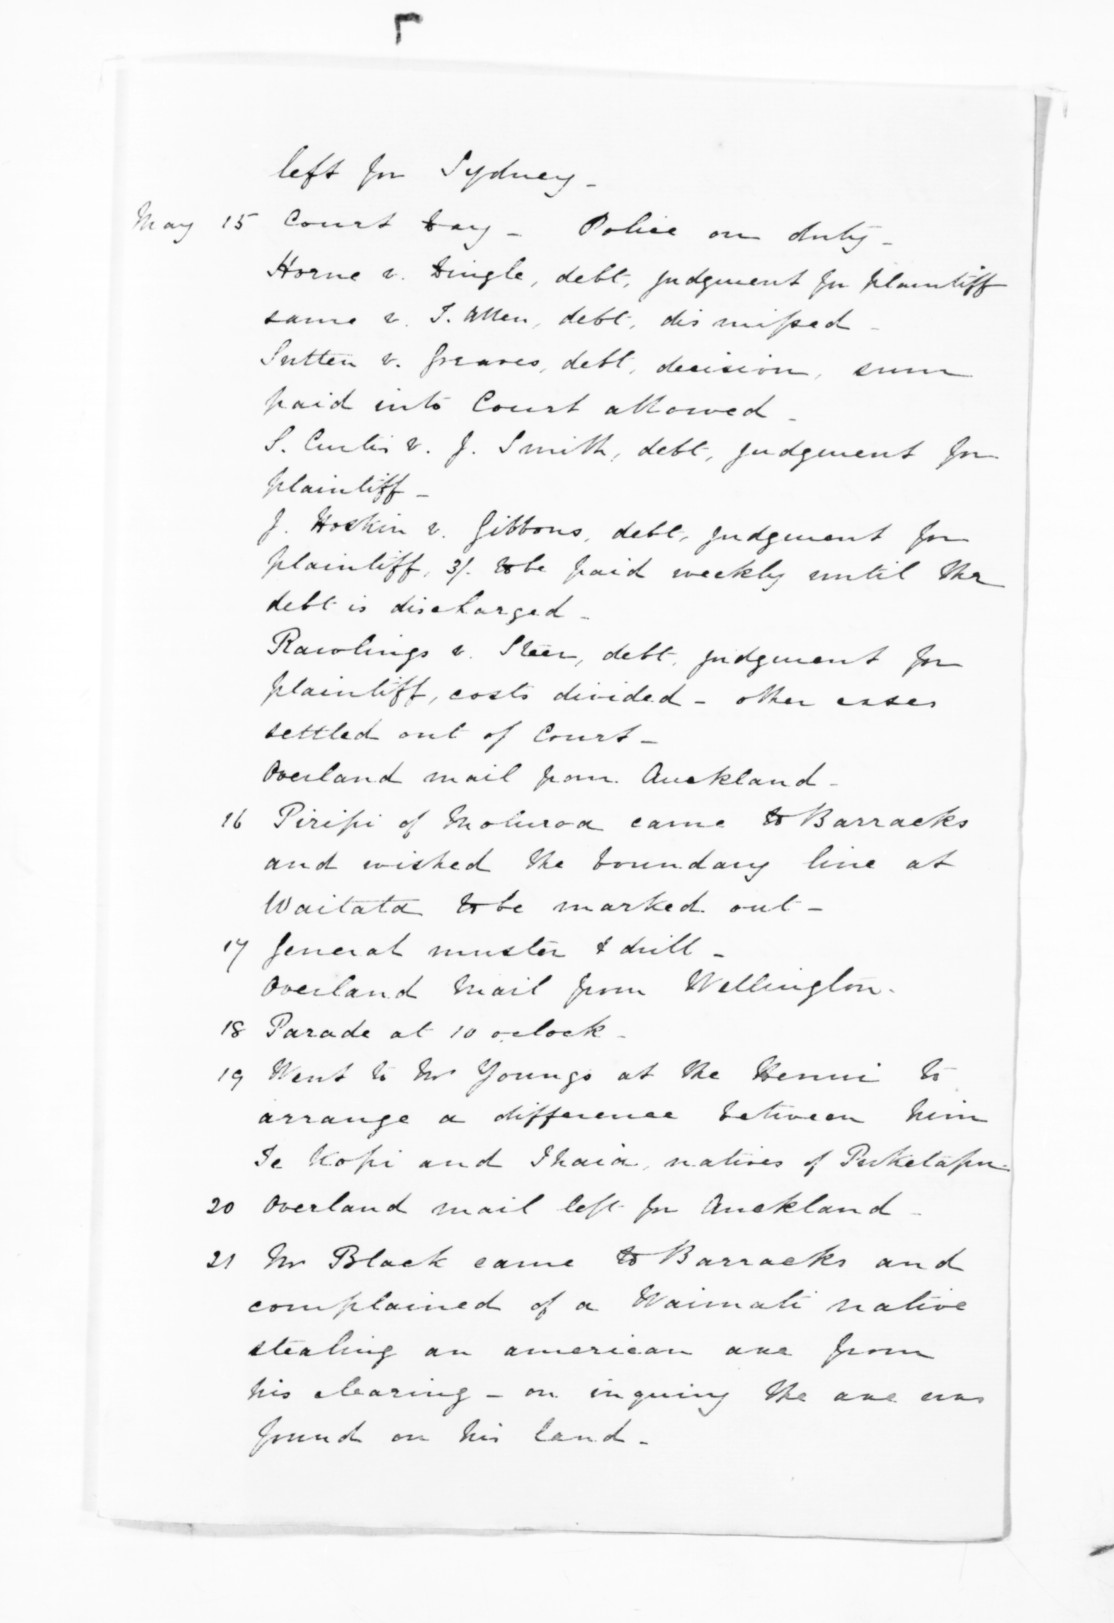 left for Sydney -
May 15 Court Day - Police on duty -
Horne v. Dingle, debt, judgment for plaintiff
same v. J. Allen, debt, dismissed -
Sutten v. Greaves, debt, decision, sum
paid into Court allowed -
S. Curtis v. J. Smith, debt, judgment for
plaintiff -
J. Hoskin v. Gibbons, debt, judgment for
plaintiff, 3/. to be paid weekly until the
debt is discharged -
Rawlings v. Steer, debt, judgment for
plaintiff, costs divided - other cases
settled out of Court -
Overland mail from Auckland -
16 Piripi of Moturoa came to Barracks
and wished the boundary line at
Waitata to be marked out -
17 General muster & drill -
Overland Mail from Wellington.
18 Parade at 10 o.clock -
19 Went to Mr Youngs at the Henui to
arrange a difference between him
Te Kopi and Ihaia, natives of Puketapu.
20 Overland mail left for Auckland -
21 Mr Black came to Barracks and
complained of a Waimati native
stealing an american axe from
his clearing - on inquiry the axe was
found on his land -